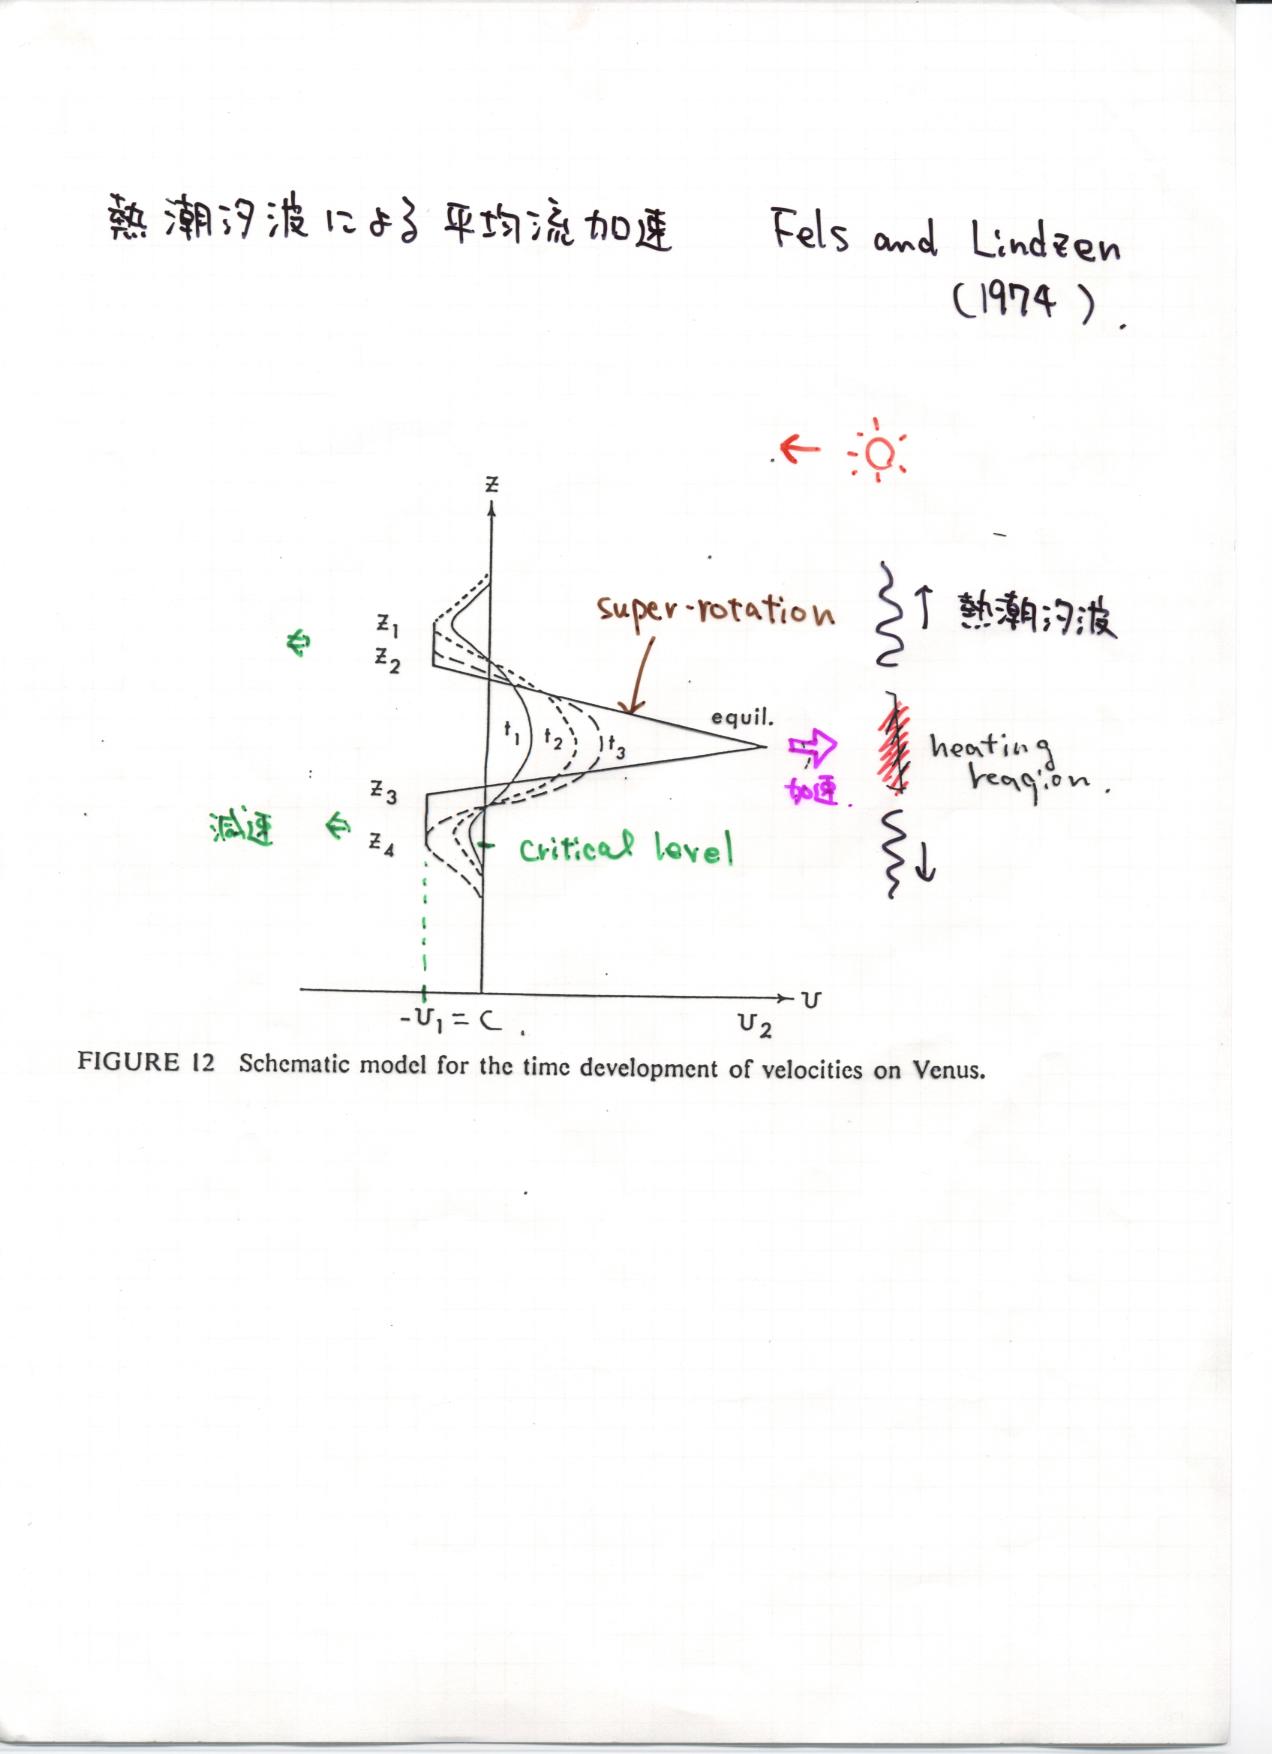 熱潮汐波による平均流加速 Fels and Lindzen
(1974).
z
super-rotation
熱潮汐波
z1
z2
equil.
t1 t2 t3
heating
reagion.
z3
加速.
減速
z4
critical level
U
-U1 = C.
U2
FIGURE 12 Schematic model for the time development of velocities on Venus.